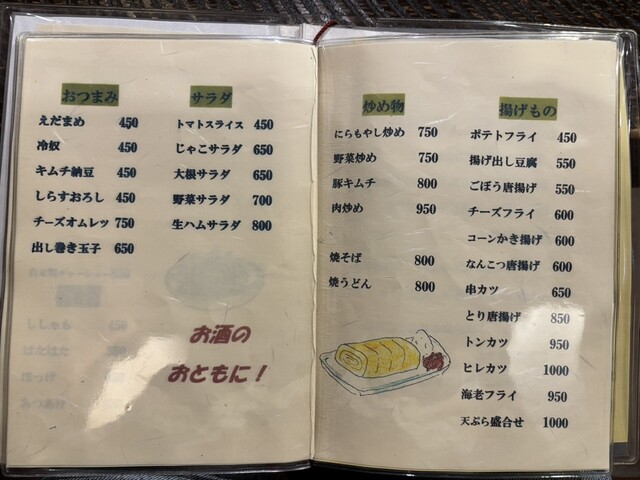 おつまみ
えだまめ 450
冷奴 450
キムチ納豆 450
しらすおろし 450
チーズオムレツ 750
出し巻き玉子 650
サラダ
トマトスライス 450
じゃこサラダ 650
大根サラダ 650
野菜サラダ 700
生ハムサラダ 800
お酒の
おともに！
ししゃも 450
はたはた
ほっけ
炒め物
にらもやし炒め 750
野菜炒め 750
豚キムチ 800
肉炒め 950
焼そば 800
焼うどん 800
揚げもの
ポテトフライ 450
揚げ出し豆腐 550
ごぼう唐揚げ 550
チーズフライ 600
コーンかき揚げ 600
なんこつ唐揚げ 600
串カツ 650
とり唐揚げ 850
トンカツ 950
ヒレカツ 1000
海老フライ 950
天ぷら盛合せ 1000